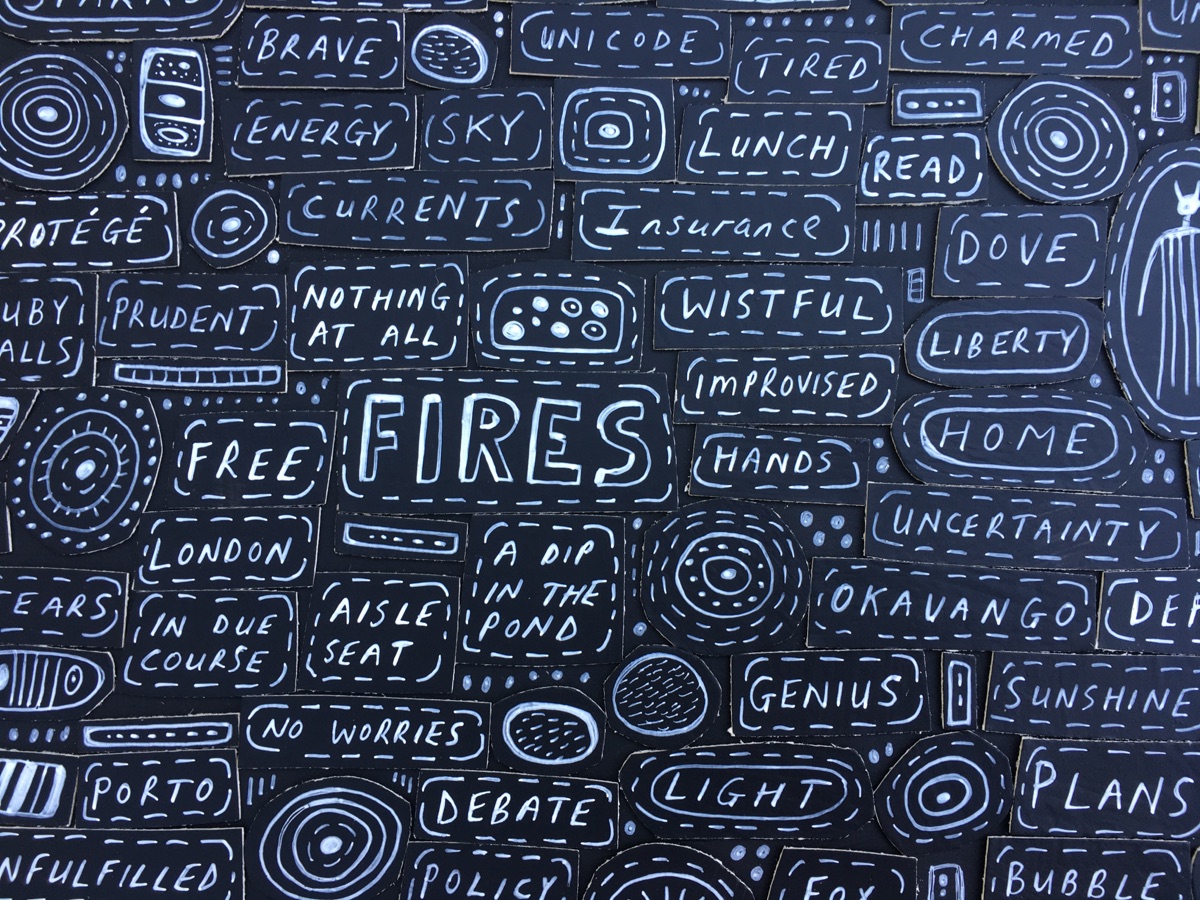 BRAVE
UNICODE
TIRED
CHARMED
ENERGY
SKY
LUNCH
READ
PROTÉGÉ
CURRENTS
Insurance
DOVE
UBY
ALLS
PRUDENT
NOTHING
AT ALL
WISTFUL
LIBERTY
IMPROVISED
FREE
FIRES
HANDS
HOME
LONDON
A DIP
IN THE
POND
UNCERTAINTY
TEARS
IN DUE
COURSE
AISLE
SEAT
OKAVANGO
DE
NO WORRIES
GENIUS
SUNSHINE
PORTO
DEBATE
LIGHT
PLANS
NFULFILLED
POLICY
FOX
BUBBLE